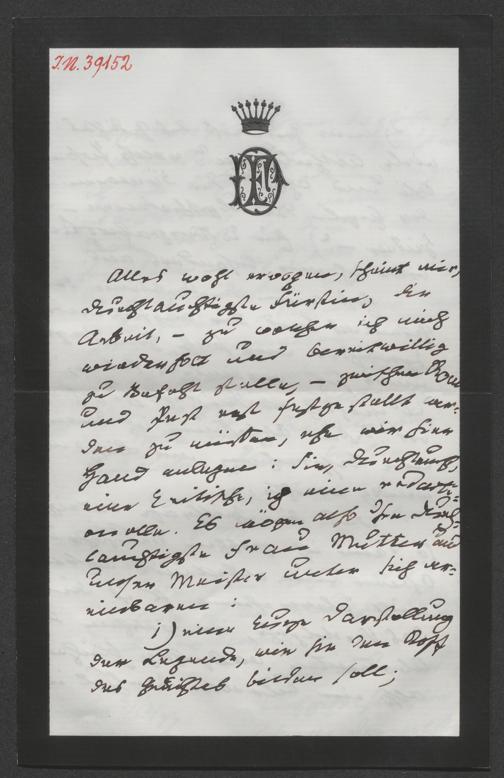 I.N. 39152
Alles wohl erwogen, scheint mir,
durchlauchtigste Fürstin, die
Arbeit, – zu welcher ich mich
wiederholt und bereitwillig
zu Befehl stelle, – zwischen
und erst festgestellt wer-
den zu müssen, ehe wir eine
Hand anlegen: Sie, Durchlaucht,
eine kritische, ich eine
Es mögen also Ihre durch-
lauchtigste Frau Mutter und
unser Meister unter sich ver-
einbaren:
1) eine kurze Darstellung
der Legende, wie sie den Stoff
des bilden soll;